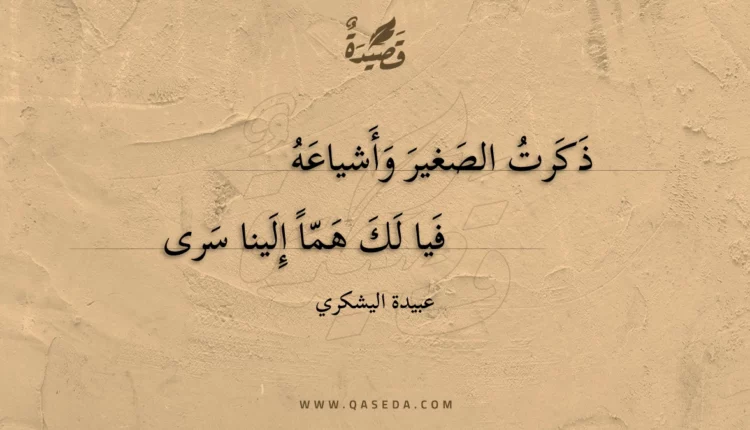 قَصِيدَةٌ
ذَكَرتُ الصَغيرَ وَأَشياعَهُ
فَيا لَكَ هَمّاً إِلَينا سَرى
عبيدة اليشكري
WWW.QASEDA.COM